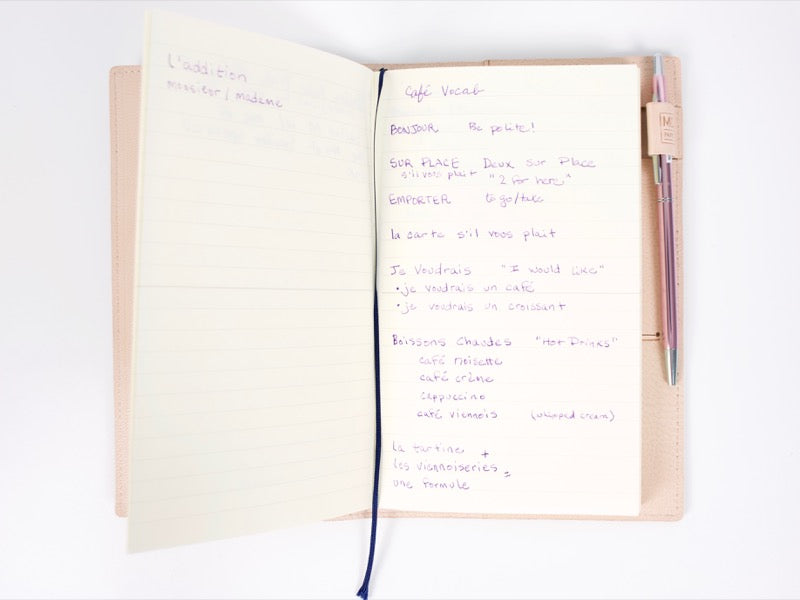 L'addition
monsieur / madame
Café Vocab
BONJOUR Be polite!
SUR PLACE Deux sur Place
s'il vous plait "2 for here"
EMPORTER to go/take
la carte s'il vous plait
Je Voudrais "I would like"
•je voudrais un café
•je voudrais un croissant
Boissons Chaudes "Hot Drinks"
café noisette
café crème
cappuccino
café viennois (whipped cream)
La tartine +
les viennoiseries =
une formule